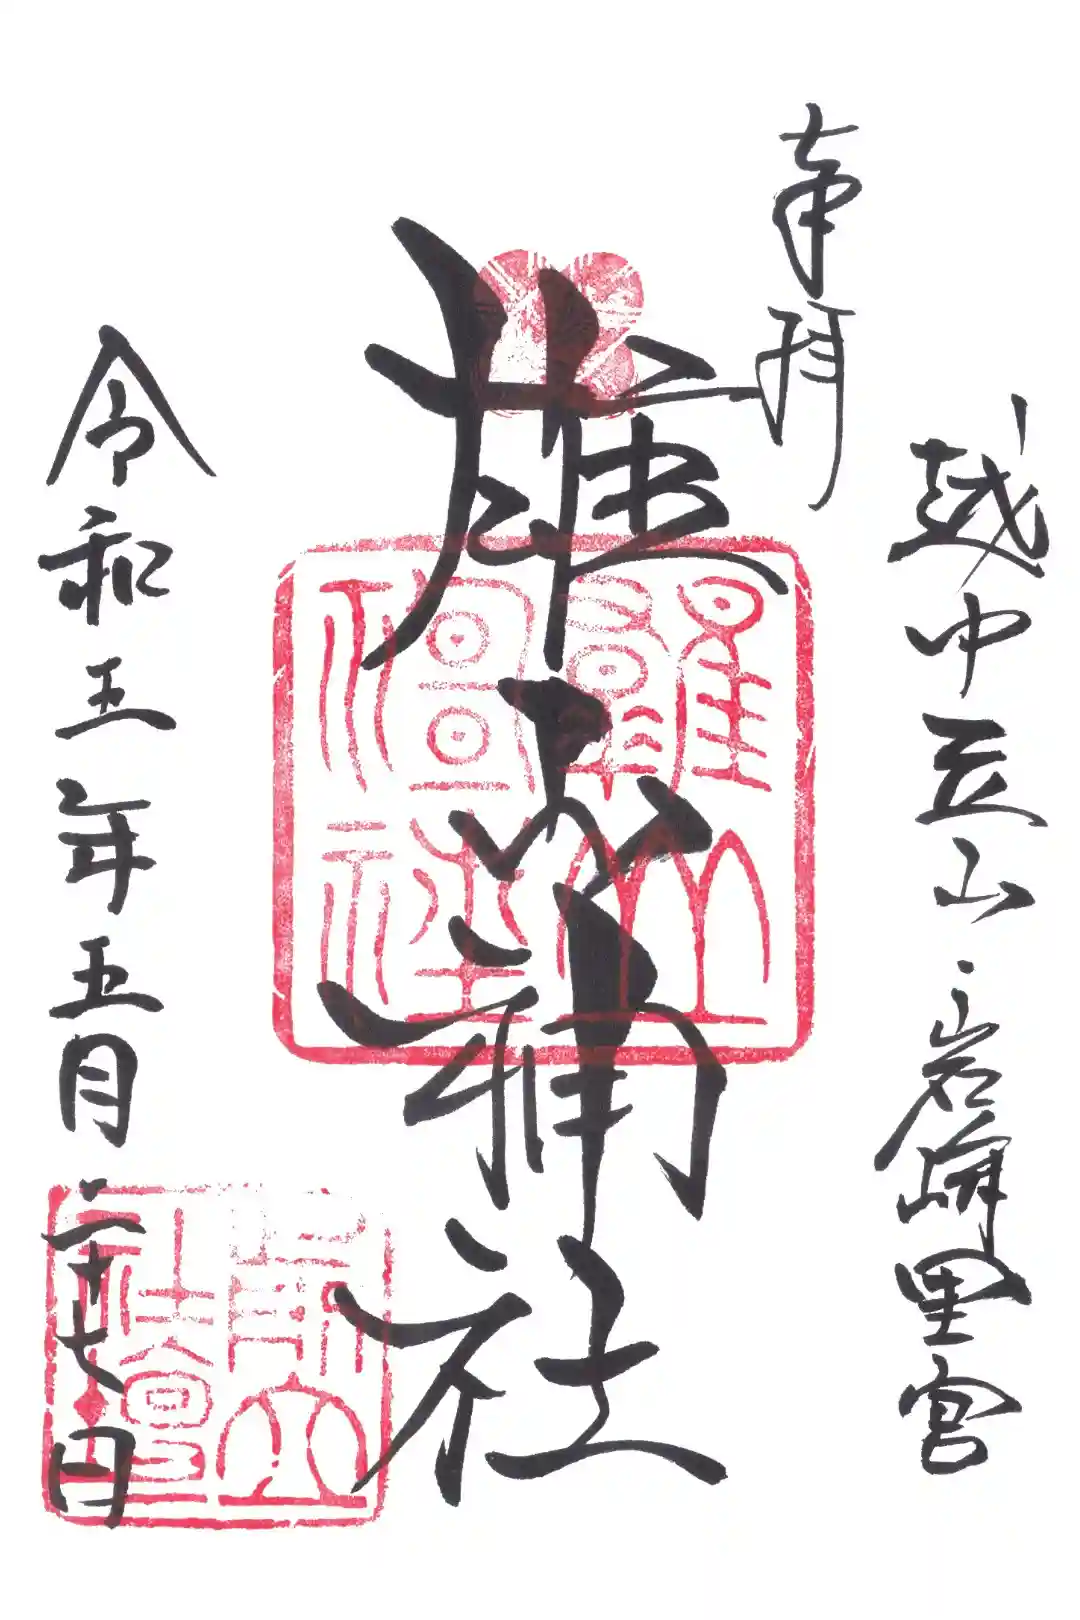 奉拝
越中立山
岩峅里宮
雄山神社
雄山神社
令和五年五月二十七日
前立社壇